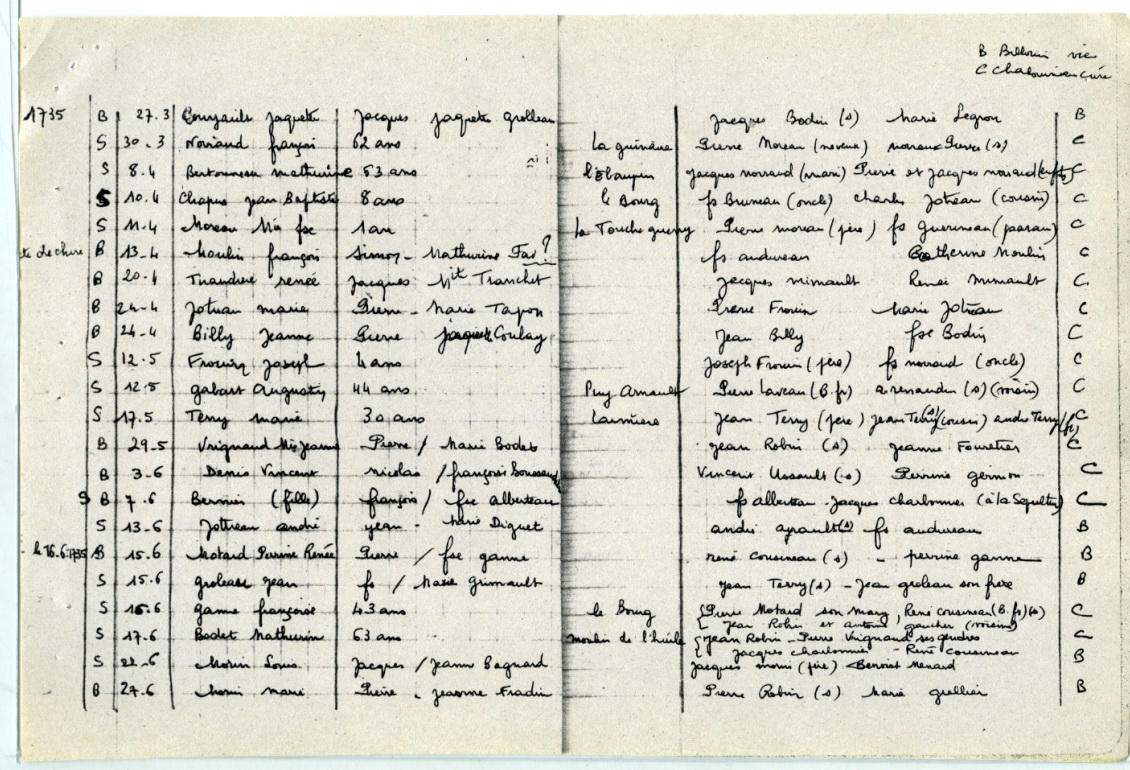 B Billouin vic
C Chalouineau curé
1735 B 27.3 jaquette Jacques jaquette grolleau Jacques Bodin (s) Marie Legron B
S 30.3 Noviaud françois 62 ans La guinâne Pierre Moreau (neveu) Pierre (s) C
S 8.4 Bertonneau mathurine 53 ans jacques noviaud (mari) Pierre et Jacques noviaud C
S 10.4 Chapus jean Baptiste 8 ans le Bourg fs Bruneau (oncle) charles Jotreau (cousin) C
S 11.4 Moreau Mie fse 1 an La Touche Pierre moreau (père) fs guerineau (parain) C
B 13-4 Moulin françois Simon - Mathurine Fad? fs audureau Catherine Moulin C
B 20.4 renée Jacques Mit Tranchet Jacques mimault Renée Mimault C
B 24-4 Jotreau marie Pierre - Marie Tapon Pierre Frouin Marie Jotreau C
B 24-4 Billy Jeanne Pierre Coulay Jean Billy fse Bodin C
S 12.5 Frouin Joseph 4 ans Joseph Frouin (père) fs noviaud (oncle) C
S 12.5 gabart Augustin 44 ans Puy Arnault Pierre Laveau (B.fr) a renaudin (s) (voisin) C
S 17.5 Terry marie 30 ans Jean Terry (père) jean Terry (s) (cousin) andré Terry C
B 29-5 Vrignaud Mie Jeanne Pierre / Marie Bodet Jean Robin (s) Jeanne C
B 3-6 Denis Vincent nicolas / françoise Vincent Ussault (s) Perrine germon C
S B 7-6 Bernier (fille) françois / fse alberteau fs alberteau - Jacques charbonnier (à la Sépulture) C
S 13-6 Jotreau andré jean - Marie Diguet andré ayrault (s) fs audureau B
le 16.6.1735 B 15.6 Motard Perrine Renée Pierre / fse ganne rené cousineau (s) - perrine ganne B
S 15.6 groleau jean fs / Marie grimault Jean Terry (s) - Jean groleau son frère B
S 16.6 ganne françoise 43 ans le Bourg {Pierre Motard son mary, René cousineau (B.fr) (s) C
{ Jean Robin et antoine gaucher (voisins)
S 17.6 Bodet Mathurin 63 ans moulin de l'huile {Jean Robin - Pierre Vrignaud ses gendres C
{ Jacques charbonnier - René cousineau
S 22-6 Morin Louis Jacques / Jeanne Bagnard Jacques morin (père) Benoist Menard B
B 27.6 Morin marie Pierre - Jeanne Fradin Pierre Robin (s) Marie grellier B